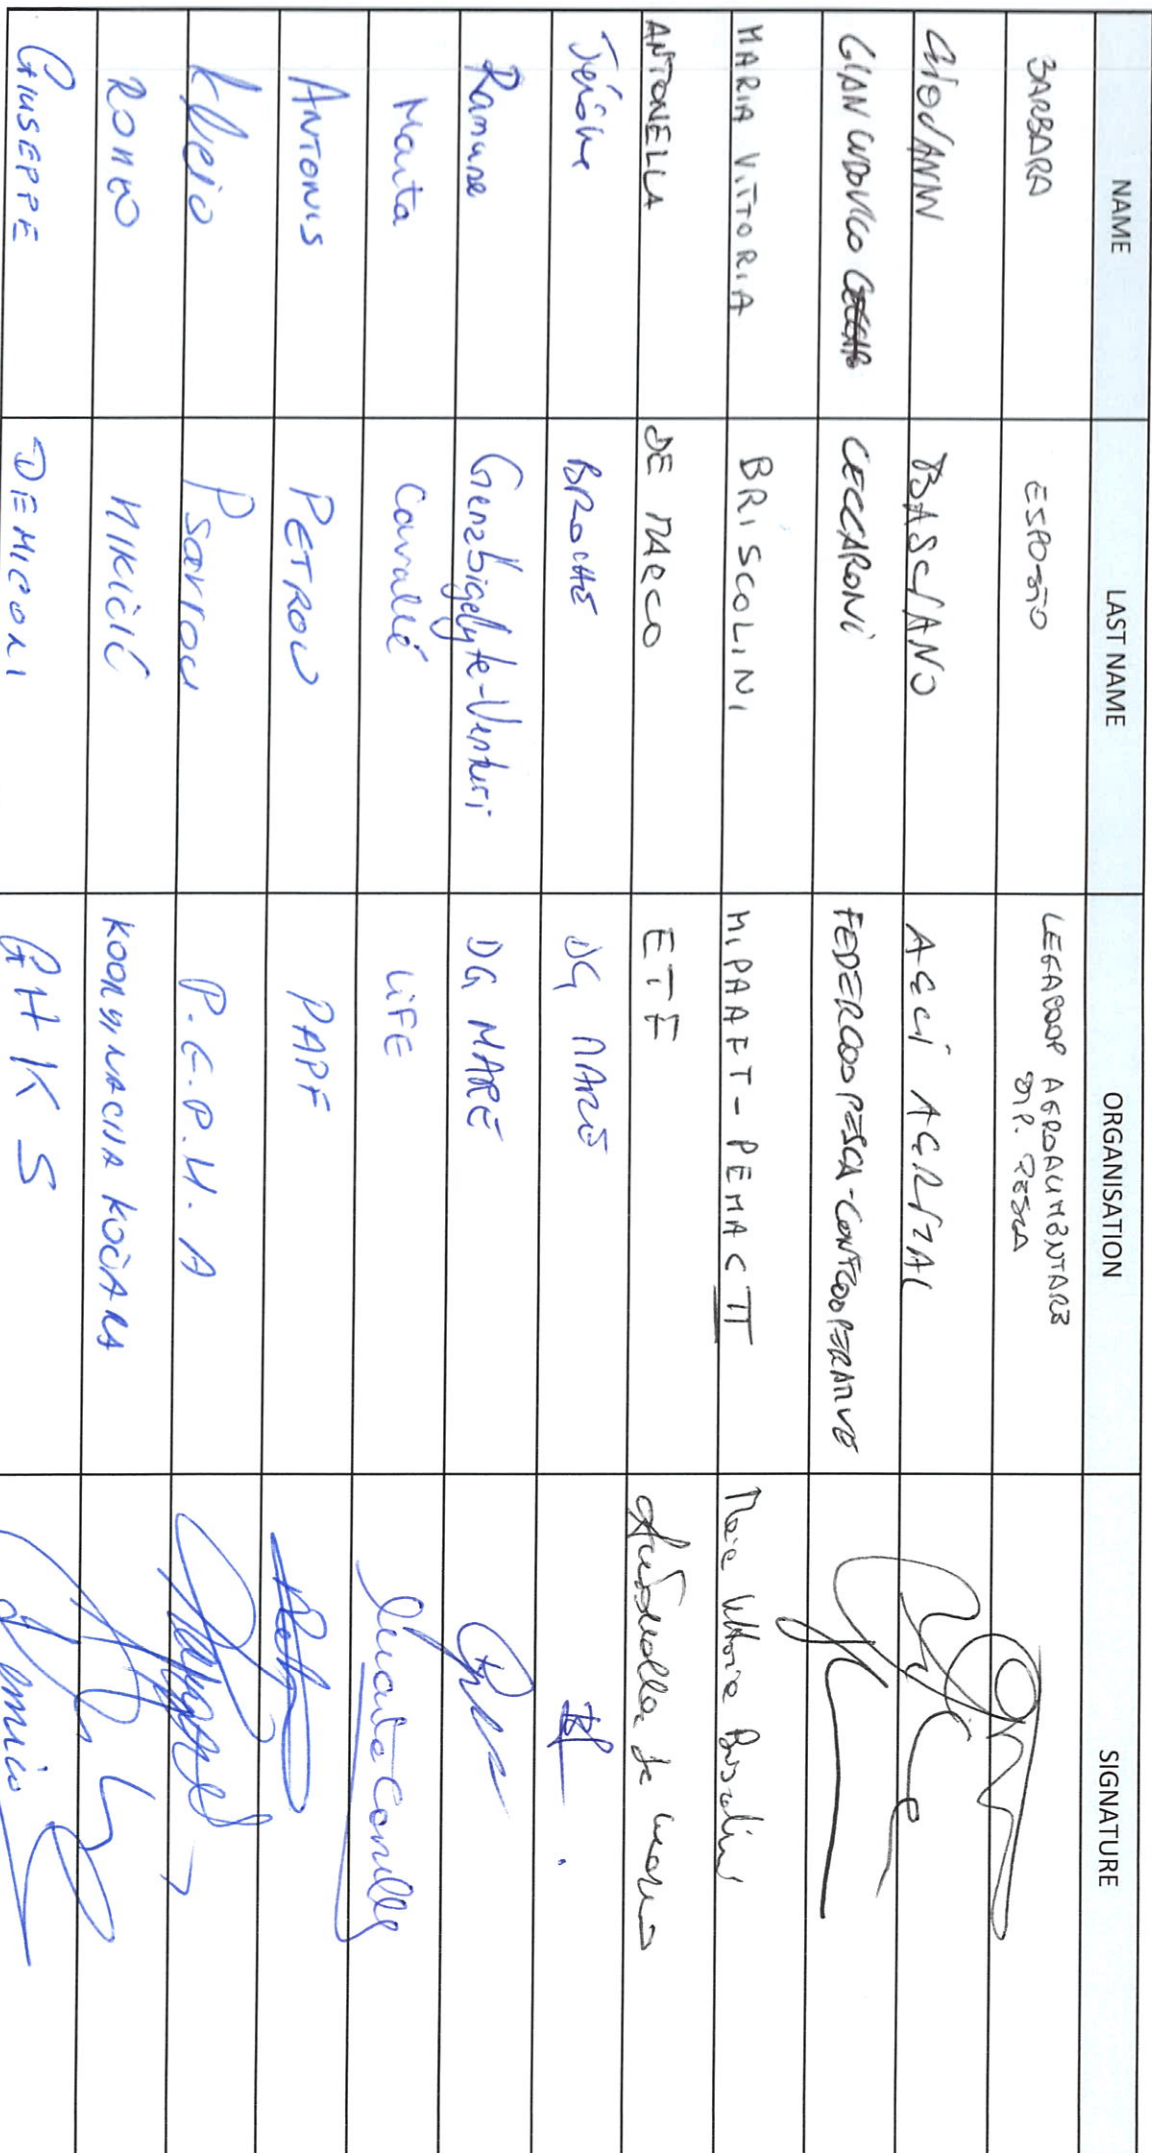 NAME LAST NAME ORGANISATION SIGNATURE
BARBARA ESPOSITO LEGACOOP AGROALIMENTARE
DIP. PESCA
GIOVANNI BASCIANO AGCI AGRITAL
GIAN LUDOVICO CECCARONI FEDERCOOPESCA-CONFCOOPERATIVE
MARIA VITTORIA BRISCOLINI MIPAAFT-PEMAC III Maria Vittoria Briscolini
ANTONELLA DE MARCO ETF Antonella de Marco
Jérôme BROCHE DG MARE
Ramune Genzbigelyte-Venturi DG MARE
Marta Cavallé LIFE Marta Cavallé
ANTONIS PETROU PAPF
Kleio Psarrou P.E.P.M.A
ROMEO MIKIČIĆ KOORDINACIJA KOĆARA
GIUSEPPE DEMICOLI GHKS